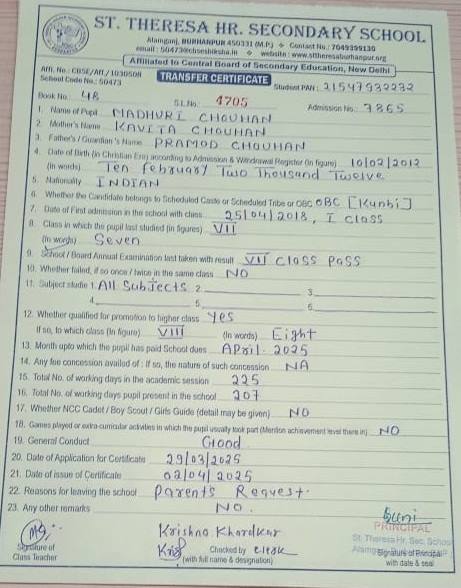 ST. THERESA HR. SECONDARY SCHOOL
Alamganj, BURHANPUR 450331 (M.P.) Contact No.: 7049399130
email : 50473@cbseshiksha.in website : www.sttheresaburhanpur.org
Affiliated to Central Board of Secondary Education, New Delhi
Affi. No.: CBSE/Aff./1030508
School Code No.: 50473
TRANSFER CERTIFICATE
Student PAN : 21547932232
Book No. 48 S.L.No. 4705 Admission No. 7865
1. Name of Pupil MADHURI CHOUHAN
2. Mother's Name KAVITA CHOUHAN
3. Father's / Guardian's Name PRAMOD CHOUHAN
4. Date of Birth (in Christian Era) according to Admission & Withdrawal Register (in figure) 10/02/2012
(in words) Ten February Two Thousand Twelve
5. Nationality INDIAN
6. Whether the Candidate belongs to Scheduled Caste or Scheduled Tribe or OBC OBC [Kunbi]
7. Date of First admission in the school with class 25/04/2018, I class
8. Class in which the pupil last studied (in figures) VII
(In words) Seven
9. School / Board Annual Examination last taken with result VII class pass
10. Whether failed, if so once / twice in the same class NO
11. Subject studie 1. All Subjects 2. 3.
4. 5. 6.
12. Whether qualified for promotion to higher class yes
If so, to which class (In figure) VIII (In words) Eight
13. Month upto which the pupil has paid School dues April. 2025
14. Any fee concession availed of : If so, the nature of such concession NA
15. Total No. of working days in the academic session 225
16. Total No. of working days pupil present in the school 207
17. Whether NCC Cadet / Boy Scout / Girls Guide (detail may be given) NO
18. Games played or extra-curricular activities in which the pupil usually took part (Mention achievement level there in) NO
19. General Conduct Good
20. Date of Application for Certificate 29/03/2025
21. Date of issue of Certificate 02/04/2025
22. Reasons for leaving the school Parent's Request.
23. Any other remarks NO.
Krishna Khardkar
PRINCIPAL
St. Theresa Hr. Sec. School
Signature of
Class Teacher
Checked by clerk
(with full name & designation)
Signature of Principal
with date & seal